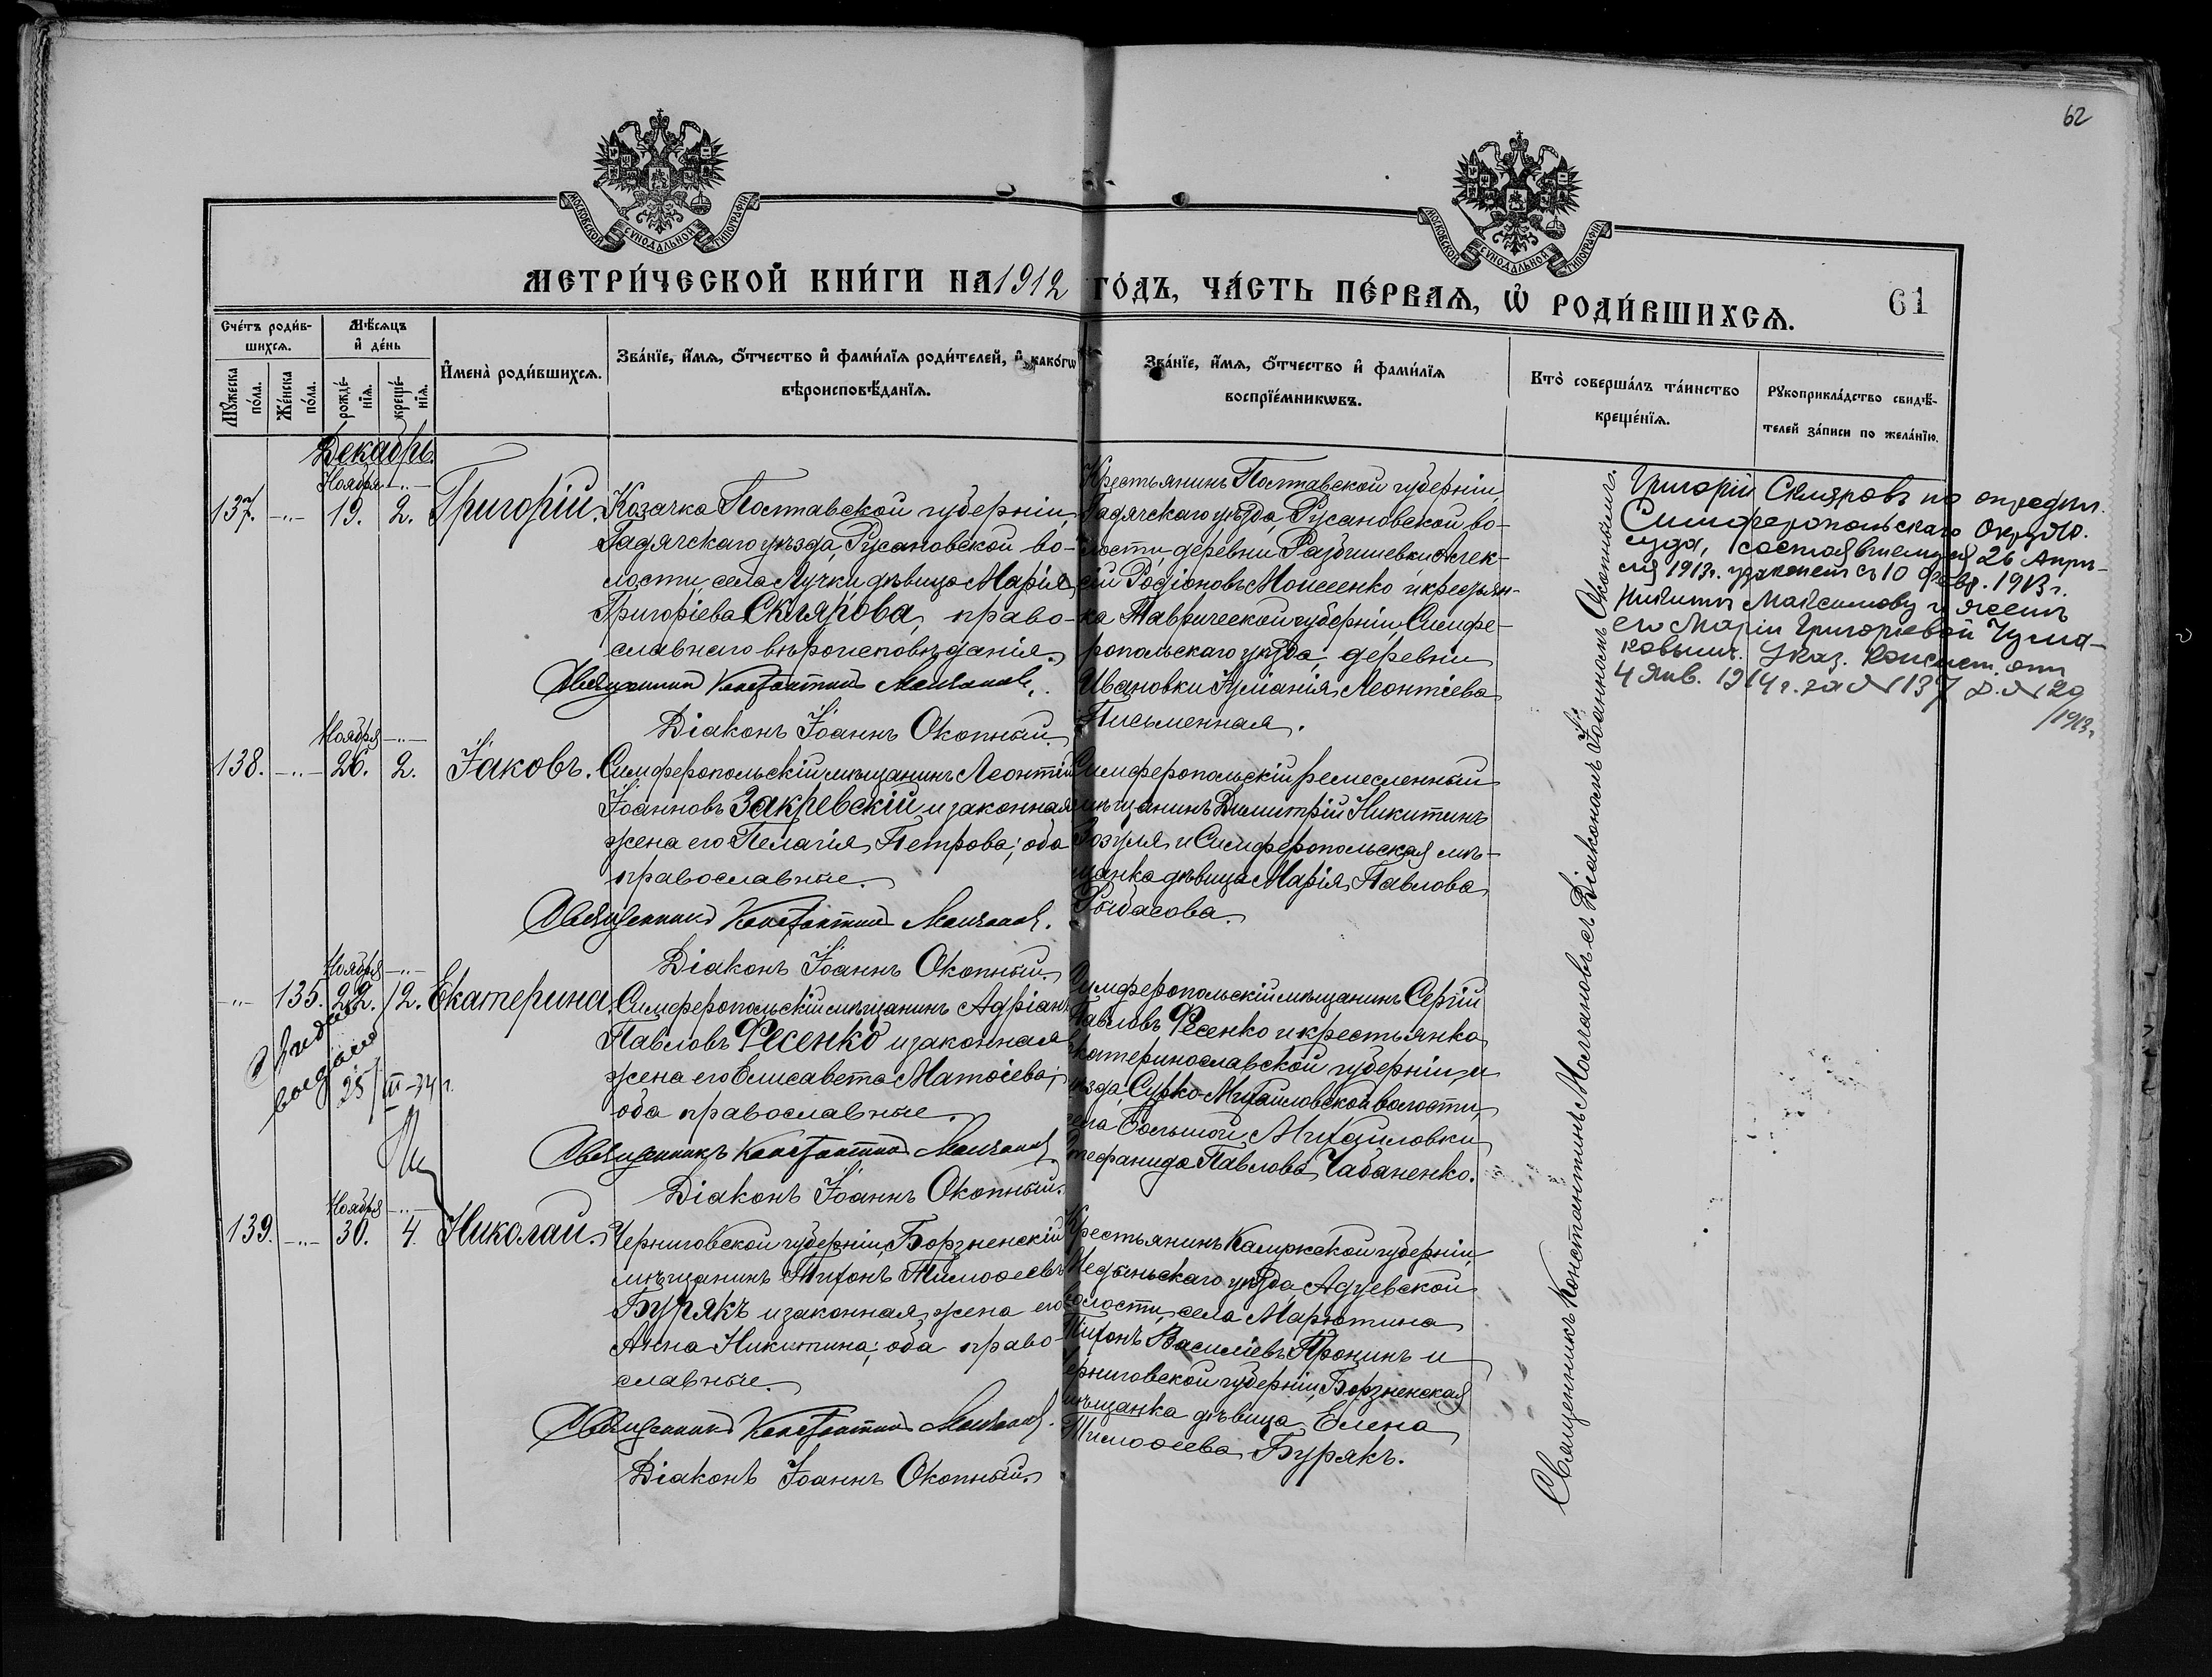 62
МОСКОВСКОЙ СѴНОДАЛЬНОЙ ТИПОГРАФІИ
МОСКОВСКОЙ СѴНОДАЛЬНОЙ ТИПОГРАФІИ
МЕТРИ́ЧЕСКОЙ КНИ́ГИ НА 1912 ГО́ДЪ, ЧА́СТЬ ПЕ́РВАѦ, Ѡ҆ РОДИ́ВШИХСѦ.
61
Сче́тъ роди́в-
шихсѧ.
Мѣ́сѧцъ
и҆ де́нь
Мꙋ́жеска
по́ла.
Же́нска
по́ла.
рожде́-
нїѧ.
креще́-
нїѧ.
И҆мена̀ роди́вшихсѧ.
Зва́нїе, и҆́мѧ, ѻ҆́тчество и҆ фами́лїѧ роди́телей, и҆ како́гѡ
вѣроисповѣ́данїѧ.
Зва́нїе, и҆́мѧ, ѻ҆́тчество и҆ фами́лїѧ
воспрїе́мникѡвъ.
Кто̀ соверша́лъ та́инство
креще́нїѧ.
Рꙋкоприкла́дство свидѣ́-
телей за́писи по жела́нїю.
Декабрь.
Ноября -"-
137. -"- 19. 2. Григорій.
Козачка Полтавской губерніи,
Гадячскаго уѣзда, Русановской во-
лости, села Лучки дѣвица Марія
Григоріева Склярова, право-
славнаго вѣроисповѣданія.
Священникъ Константинъ Молчановъ.
Діаконъ Іоаннъ Окопный.
Крестьянинъ Полтавской губерніи,
Гадячскаго уѣзда, Русановской во-
лости деревни Разбишевки Алек-
сій Родіоновъ Моисеенко и крестьян-
ка Таврической губерніи, Симфе-
ропольскаго уѣзда, деревни
Ивановки Іуліанія Леонтіева
Письменная.
Григорій Скляровъ по опредѣл.
Симферопольскаго Окружн.
суда, состоявшемуся 26 Апрѣ-
ля 1913 г. узаконенъ съ 10 Февр. 1913 г.
Никитѣ Максимову и женѣ
его Маріи Григорьевой Чума-
ковымъ. Указ. Консист. отъ
4 Янв. 1914 г. за № 137 д. № 29
/1913.
Ноября -"-
138. -"- 26. 2. Іаковъ.
Симферопольскій мѣщанинъ Леонтій
Іоанновъ Закревскій и законная
жена его Пелагія Петрова; оба
православные.
Священникъ Константинъ Молчановъ.
Діаконъ Іоаннъ Окопный.
Симферопольскій ремесленный
мѣщанинъ Димитрій Никитинъ
Зозуля и Симферопольская мѣ-
щанка дѣвица Марія Павлова
Рыбасова.
Ноября -"-
-"- 135. 22. 2. Екатерина.
25/III-34 г.
Симферопольскій мѣщанинъ Адріанъ
Павловъ Фесенко и законная
жена его Елисавета Матѳіева;
оба православные.
Священникъ Константинъ Молчановъ.
Діаконъ Іоаннъ Окопный.
Симферопольскій мѣщанинъ Сергій
Павловъ Фесенко и крестьянка
Екатеринославской губерніи и
уѣзда, Сурко-Михайловской волости,
села Большой Михайловки
Стефанида Павлова Чабаненко.
Ноября -"-
139. -"- 30. 4. Николай.
Черниговской губерніи, Борзненскій
мѣщанинъ Тихонъ Тимоѳеевъ
Бурякъ и законная жена его
Анна Никитина; оба право-
славные.
Священникъ Константинъ Молчановъ.
Діаконъ Іоаннъ Окопный.
Крестьянинъ Калужской губерніи,
Медынскаго уѣзда, Адуевской
волости, села Марютина
Тихонъ Василіевъ Пронинъ и
Черниговской губерніи, Борзненская
мѣщанка дѣвица Елена
Тимоѳеева Бурякъ.
Священникъ Константинъ Молчановъ съ Діакономъ Іоанномъ Окопнымъ.